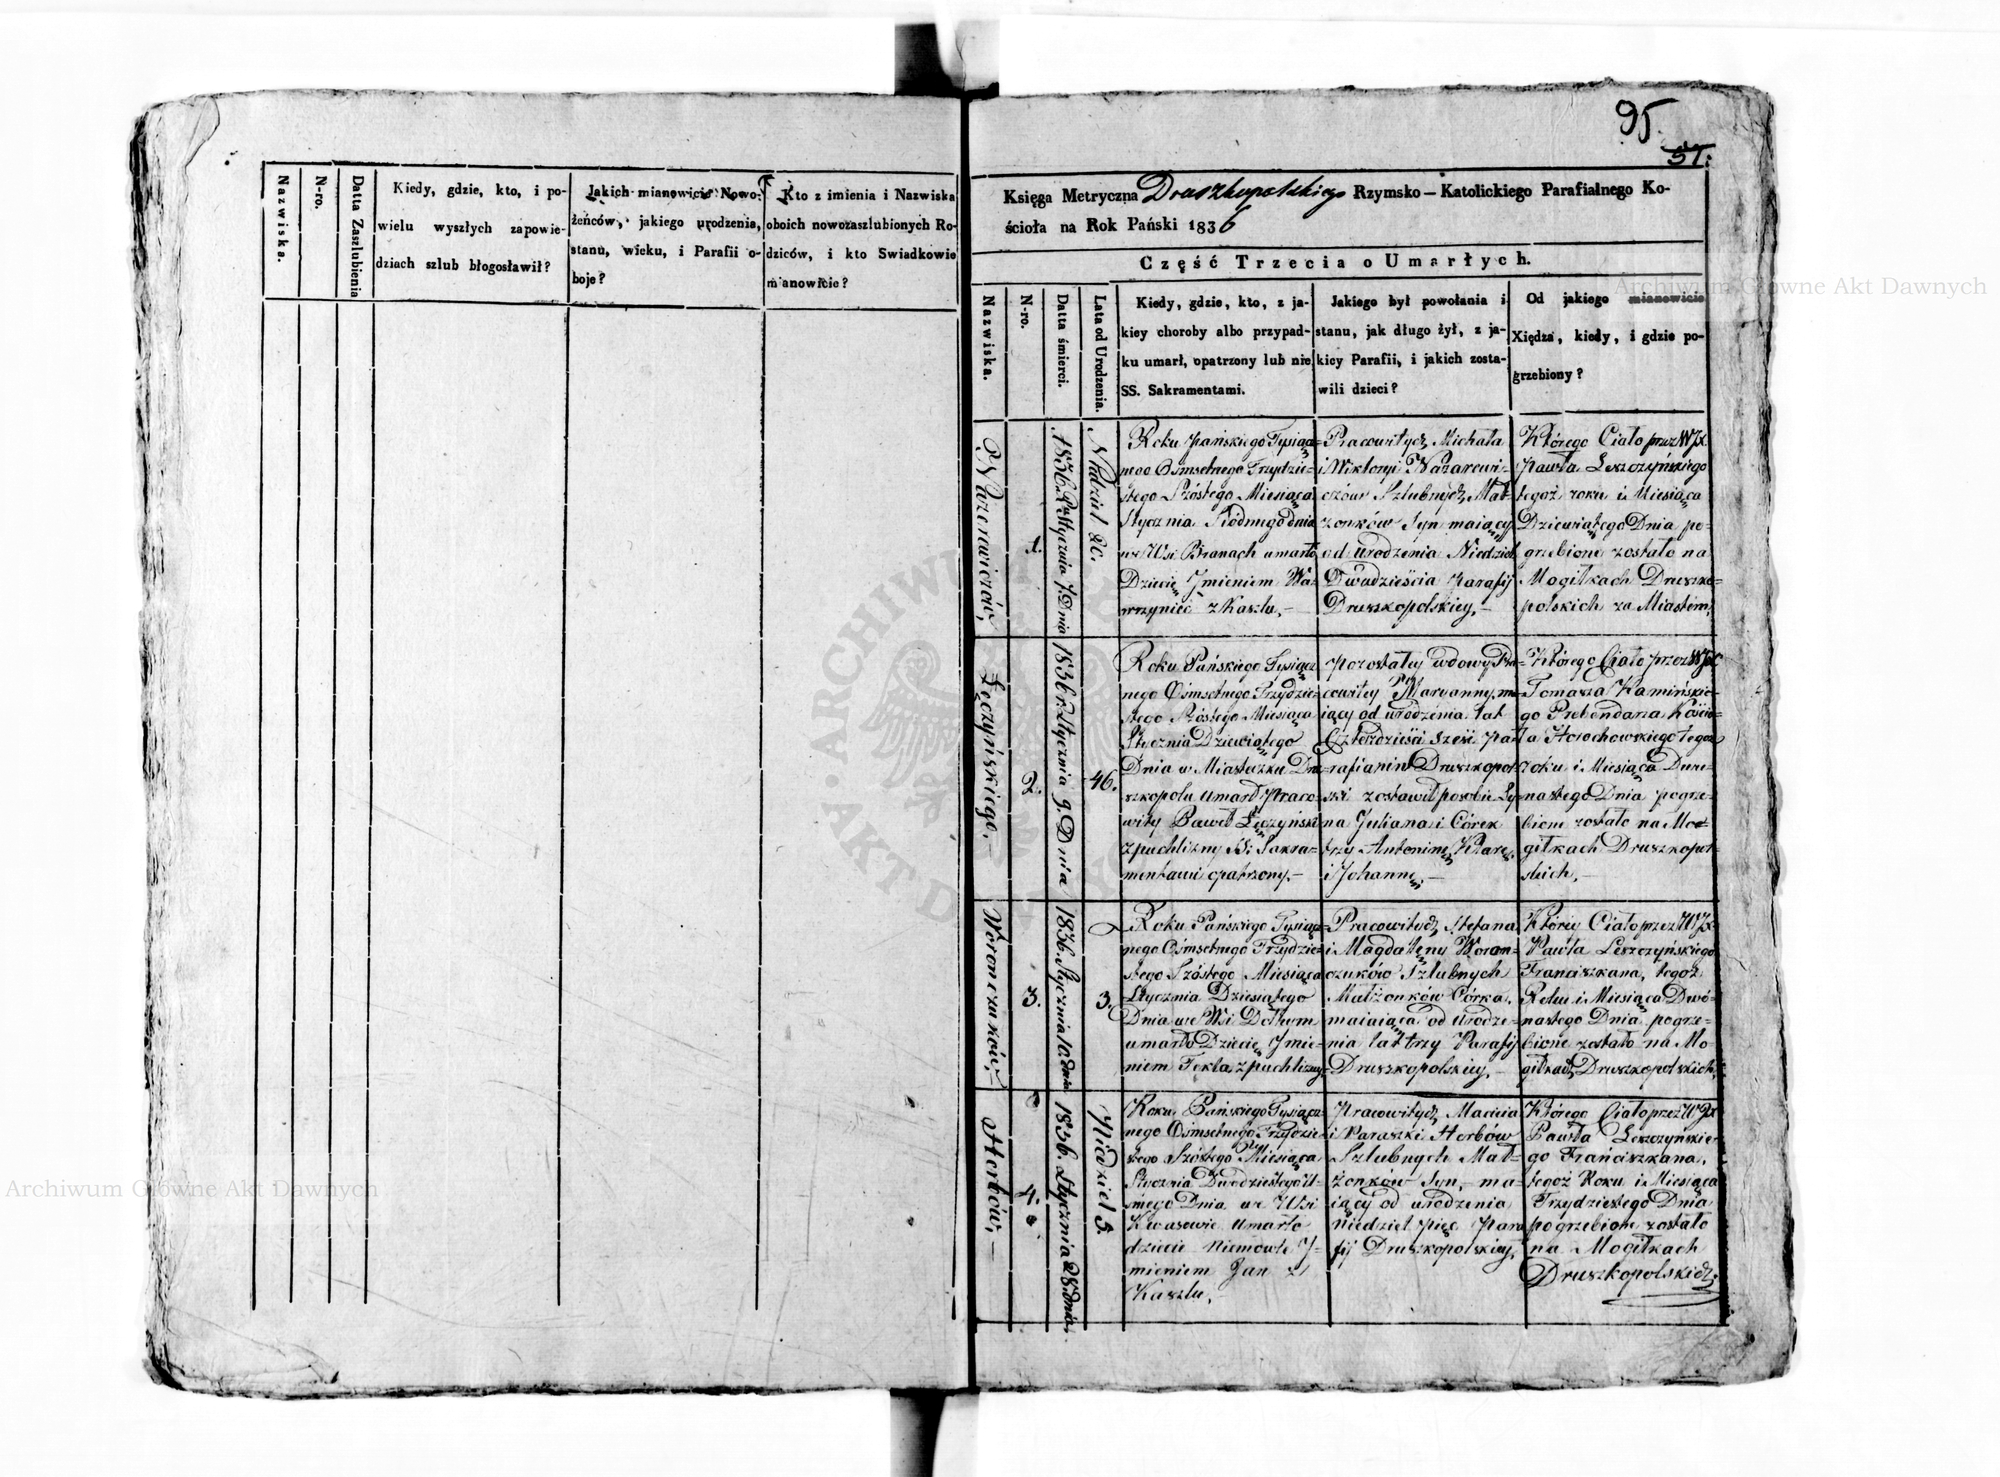 95
57.
Nazwiska.
N-ro.
Datta Zaszlubienia
Kiedy, gdzie, kto, i po-
wielu wyszłych zapowie-
dziach szlub błogosławił?
Jakich mianowicie Nowo-
żeńców, jakiego urodzenia,
stanu, wieku, i Parafii o-
boje?
Kto z imienia i Nazwiska
oboich nowozaszlubionych Ro-
dziców, i kto Swiadkowie
mianowicie?
Księga Metryczna Druszkopolskiego Rzymsko-Katolickiego Parafialnego Ko-
ścioła na Rok Pański 1836
Część Trzecia o Umarłych.
Nazwiska.
N-ro.
Datta śmierci.
Lata od Urodzenia.
Kiedy, gdzie, kto, z ja-
kiey choroby albo przypad-
ku umarł, opatrzony lub nie
SS. Sakramentami.
Jakiego był powołania i
stanu, jak długo żył, z ja-
kiey Parafii, i jakich zosta-
wili dzieci?
Od jakiego mianowicie
Xiędza, kiedy, i gdzie po-
grzebiony?
Nazarewiczów,
1.
1836. R. Stycznia 7. Dnia
Niedziel 20.
Roku Pańskiego Tysiącz-
nego Osmsetnego Trzydzie-
stego Szóstego Miesiąca
Stycznia Siódmego dnia
we Wsi Branach umarło
Dziecie Jmieniem Wa-
wrzyniec z Kaszlu,-
Pracowitych Michała
i Wiktoryi Nazarewi-
czów Szlubnych Mał-
zonków Syn maiący
od urodzenia Niedziel
Dwadzieścia Parafij
Druszkopolskiey,-
Którego Ciało przez WJX.
Pawła Leszczyńskiego
tegoż roku i Miesiąca
Dziewiątego Dnia po-
grzebione zostało na
Mogiłkach Druszko-
polskich za Miastem,
Łęczyńskiego,
2.
1836 r. Stycznia 9. Dnia
46.
Roku Pańskiego Tysiącz-
nego Osmsetnego Trzydzie-
stego Szóstego Miesiąca
Stycznia Dziewiątego
Dnia w Miasteczku Dru-
szkopolu umarł Praco-
wity Paweł Łęczyński
z puchlizny SS: Sakra-
mentami opatrzony.-
Pozostałey wdowy Pra-
cowitey Maryanny, ma-
iący od urodzenia lat
Czterdzieści sześć Pa-
rafianin Druszkopol-
ski zostawił posobie Sy-
na Juliana i Córek
trzy Antoninę, Klarę,
i Johannę.-
Którego Ciało przez WJX
Tomasza Kamińskie-
go Prebendarza Kościo-
ła Horochowskiego tegoż
roku i Miesiąca Dwu-
nastego Dnia pogrze-
bione zostało na Mo-
giłkach Druszkopol-
skich,-
Woronczuków,-
3.
1836. Stycznia 10. dnia
3.
Roku Pańskiego Tysiącz-
nego Osmsetnego Trzydzie-
stego Szóstego Miesiąca
Stycznia Dziesiątego
Dnia we Wsi
umarło Dziecie Jmie-
niem Tekla, z puchlizny,
Pracowitych Stefana
i Magdaleny Woron-
czuków Szlubnych
Małżonków Córka,
maiąca od urodze-
nia lat trzy Parafij
Druszkopolskiey,-
Którey Ciało przez WJX
Pawła Leszczyńskiego
Franciszkana, tegoż
Roku i Miesiąca Dwó-
nastego Dnia pogrze-
bione zostało na Mo-
giłkach Druszkopolskich,
Horbów,-
4.
1836. Stycznia 28. dnia.
Niedziel 5.
Roku Pańskiego Tysiącz-
nego Osmsetnego Trzydzie-
stego Szóstego Miesiąca
Stycznia Dwódziestego Ó-
smego Dnia we Wsi
Kwasowie umarło
dziecie niemowle J-
mieniem Jan z
Kaszlu,-
Pracowitych Macieia
i Paraszki Horbów
Szlubnych Mał-
żonków Syn, ma-
iący od urodzenia
niedziel pięc Para
fij Druszkopolskiey,
Którego Ciało przez WJX
Pawła Leszczyńskie-
go Franciszkana,
tegoż Roku i Miesiąca
Trzydziestego Dnia
pogrzebione zostało
na Mogiłkach
Druszkopolskich.
Archiwum Główne Akt Dawnych
Archiwum Główne Akt Dawnych